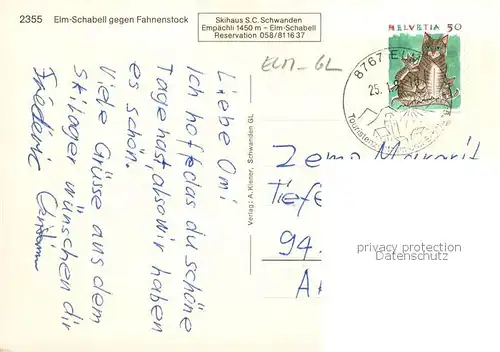 2355 Elm-Schabell gegen Fahnenstock
Skihaus S.C. Schwanden
Empächli 1450 m – Elm-Schabell
Reservation 058/811637
ELM-GL
HELVETIA 50
8767 EL
25.
Liebe Omi
Ich hoffe das du schöne
Tage hast, also wir haben
es schön.
Viele Grüsse aus dem
Skilager wünschen dir
Frédéric
Verlag: A. Kleiner, Schwanden GL
Tiefe
94.
A
privacy protection
Datenschutz